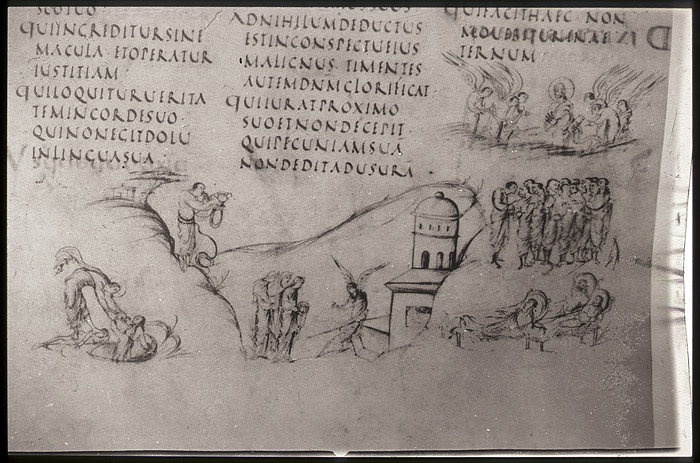 SCOTUO
QUIINGREDITURSINE
MACULA ETOPERATUR
IUSTITIAM
QUILOQUITURUERITA
TEMINCORDESUO
QUINONEGITDOLU
INLINGUASUA
ADNIHILUMDEDUCTUS
ESTINCONSPECTUEIUS
MALIGNUS TIMENTES
AUTEMDNMGLORIFICAT
QUIIURATPROXIMO
SUOETNONDECEPIT
QUIPECUNIAMSUA
NONDEDITADUSURA
QUIFACITHAEC NON
MOUEBITURINAE
TERNUM